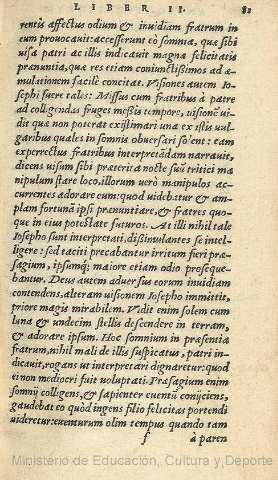 LIBER II. 81
rentis affectus odium & inuidiam fratrum in
eum prouocauit: accesserunt eò somnia, quæ sibi
uisa patri ac illis indicauit magna felicitatis
pranuntia, quæ res etiam coniunctissimos ad æ-
mulationem facilè concitat. Visiones autem Io-
sephi fuere tales: Missus cum fratribus à patre
ad colligendas fruges messis tempore, uisionē ui-
dit quæ non poterat existimari una ex istis uul-
garibus quales in somnis obuersari solent: eam
experrectus fratribus interpretādam narrauit,
dicens uisum sibi præterita nocte suū tritici ma
nipulum stare loco, illorum uerò manipulos ac-
currentes adorare eum: quod uidebatur & am-
plam fortunā ipsi prænuntiare, & fratres quo-
que in eius potestate futuros. At illi nihil tale
Iosepho sunt interpretati, dissimulantes se intel-
ligere: sed taciti precabantur irritum fieri præ-
sagium, ipsumq; maiore etiam odio proseque-
bantur. Deus autem aduersus eorum inuidiam
contendens, alteram uisionem Iosepho immittit,
priore magis mirabilem. Vidit enim solem cum
luna & undecim stellis descendere in terram,
& adorare ipsum. Hoc somnium in præsentia
fratrum, nihil mali de illis suspicatus, patri in-
dicauit, rogans ut interpretari dignaretur: quod
ei non mediocri fuit uoluptati. Præsagium enim
somnij colligens, & sapienter euentū conijciens,
gaudebat eo quòd ingens filio felicitas portendi
uideretur: euenturum olim tempus quando tam
f à paren
Ministerio de Educación, Cultura y Deporte